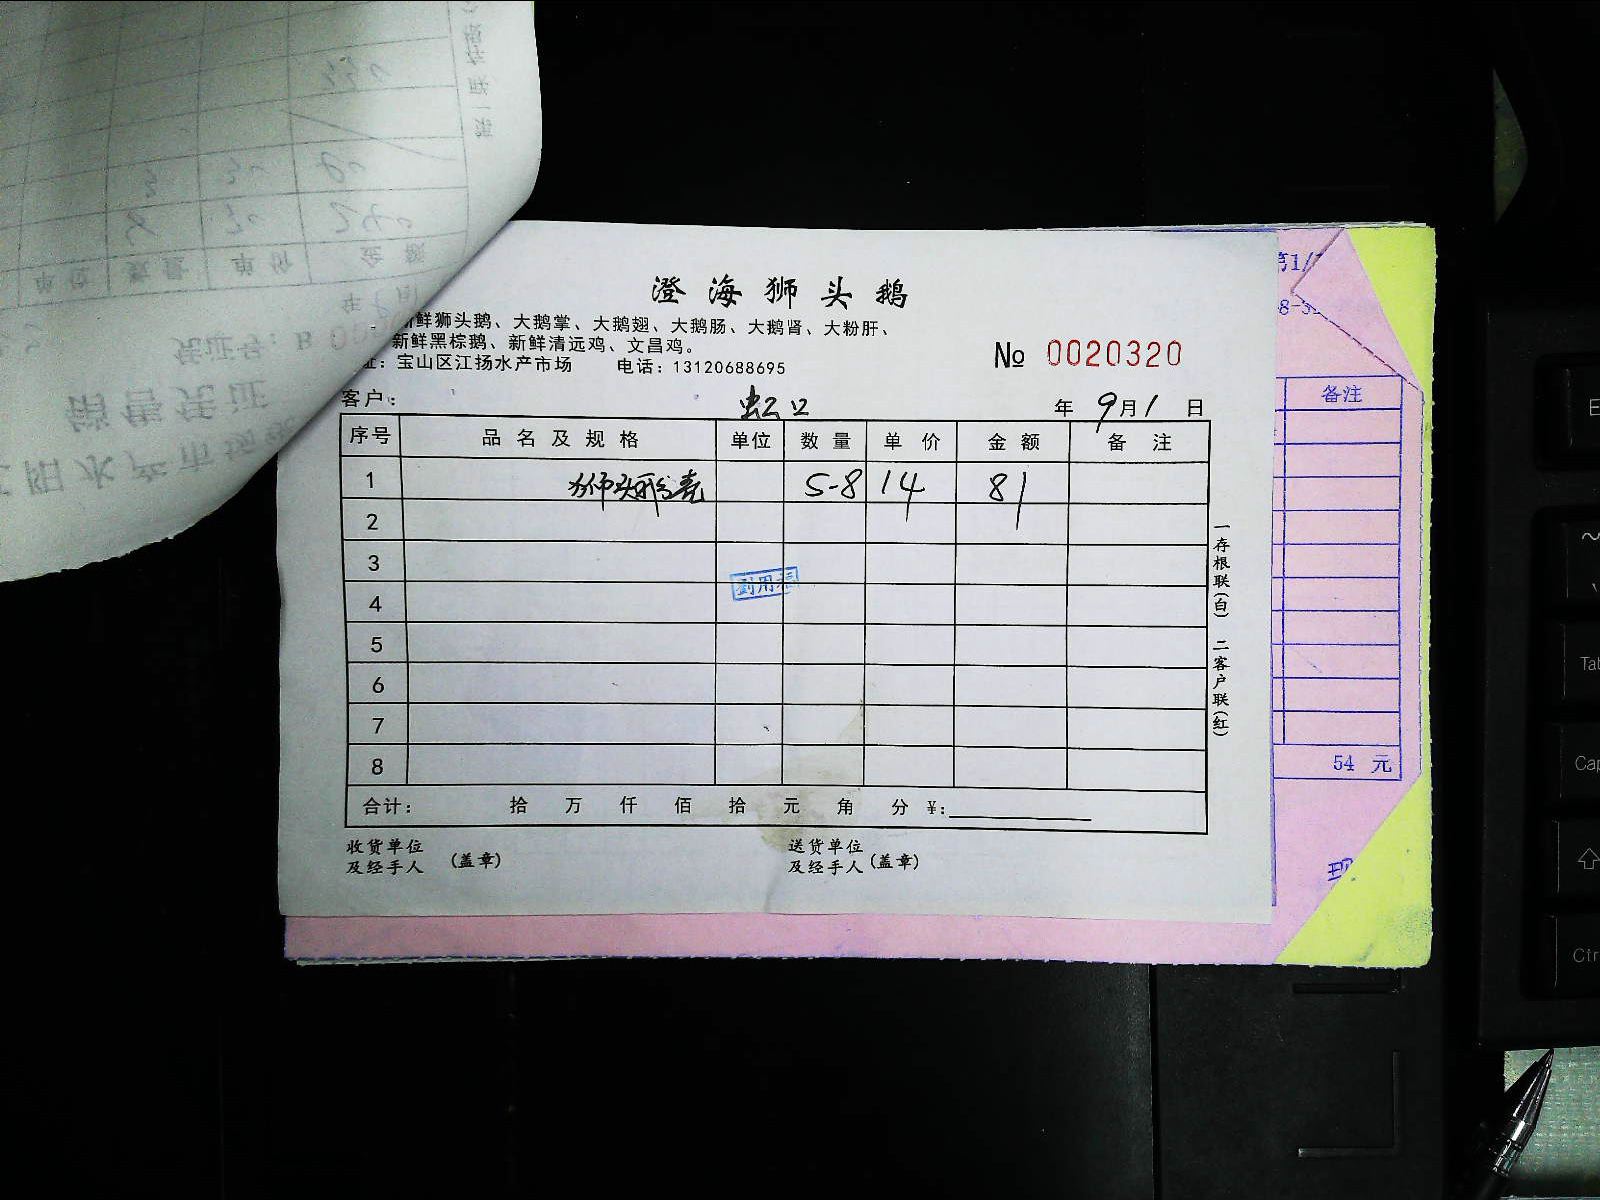 澄海狮头鹅
新鲜狮头鹅、大鹅掌、大鹅翅、大鹅肠、大鹅肾、大粉肝、
新鲜黑棕鹅、新鲜清远鸡、文昌鸡。
址：宝山区江扬水产市场 电话：13120688695
№ 0020320
客户： 虹口 年 9月1日
序号 品名及规格 单位 数量 单价 金额 备注
1 狮头鹅 5-8 14 81
2
3
4
5
6
7
8
合计： 拾 万 仟 佰 拾 元 角 分 ¥:
收货单位
及经手人 (盖章)
送货单位
及经手人 (盖章)
一存根联(白) 二客户联(红)
第1/
备注
54 元
销售凭证
凭证号：B
单位 数量 单价 金额
3 30
水产市场
Tab
Cap
Ctr